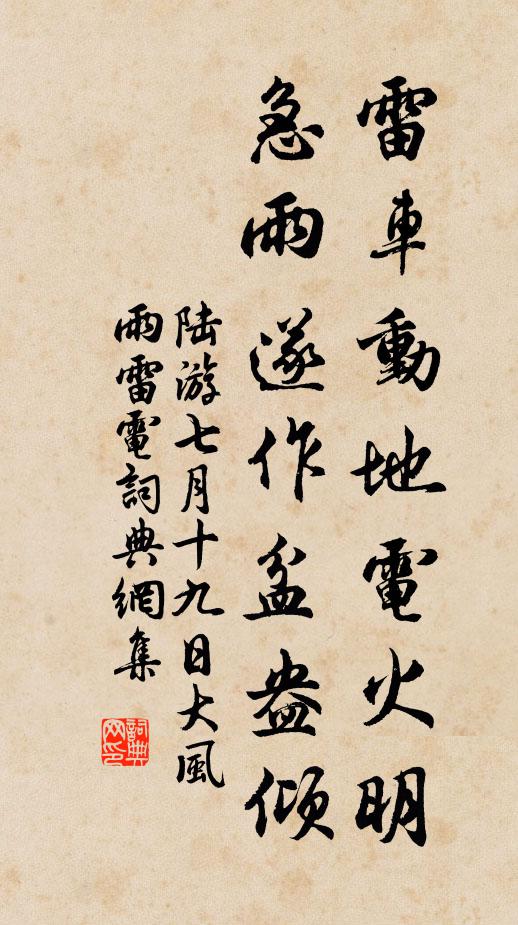 雷車動地電火明
急雨遂作盆盎傾
陸游七月十九日大風
雨雷電詞典網集
詞典網印